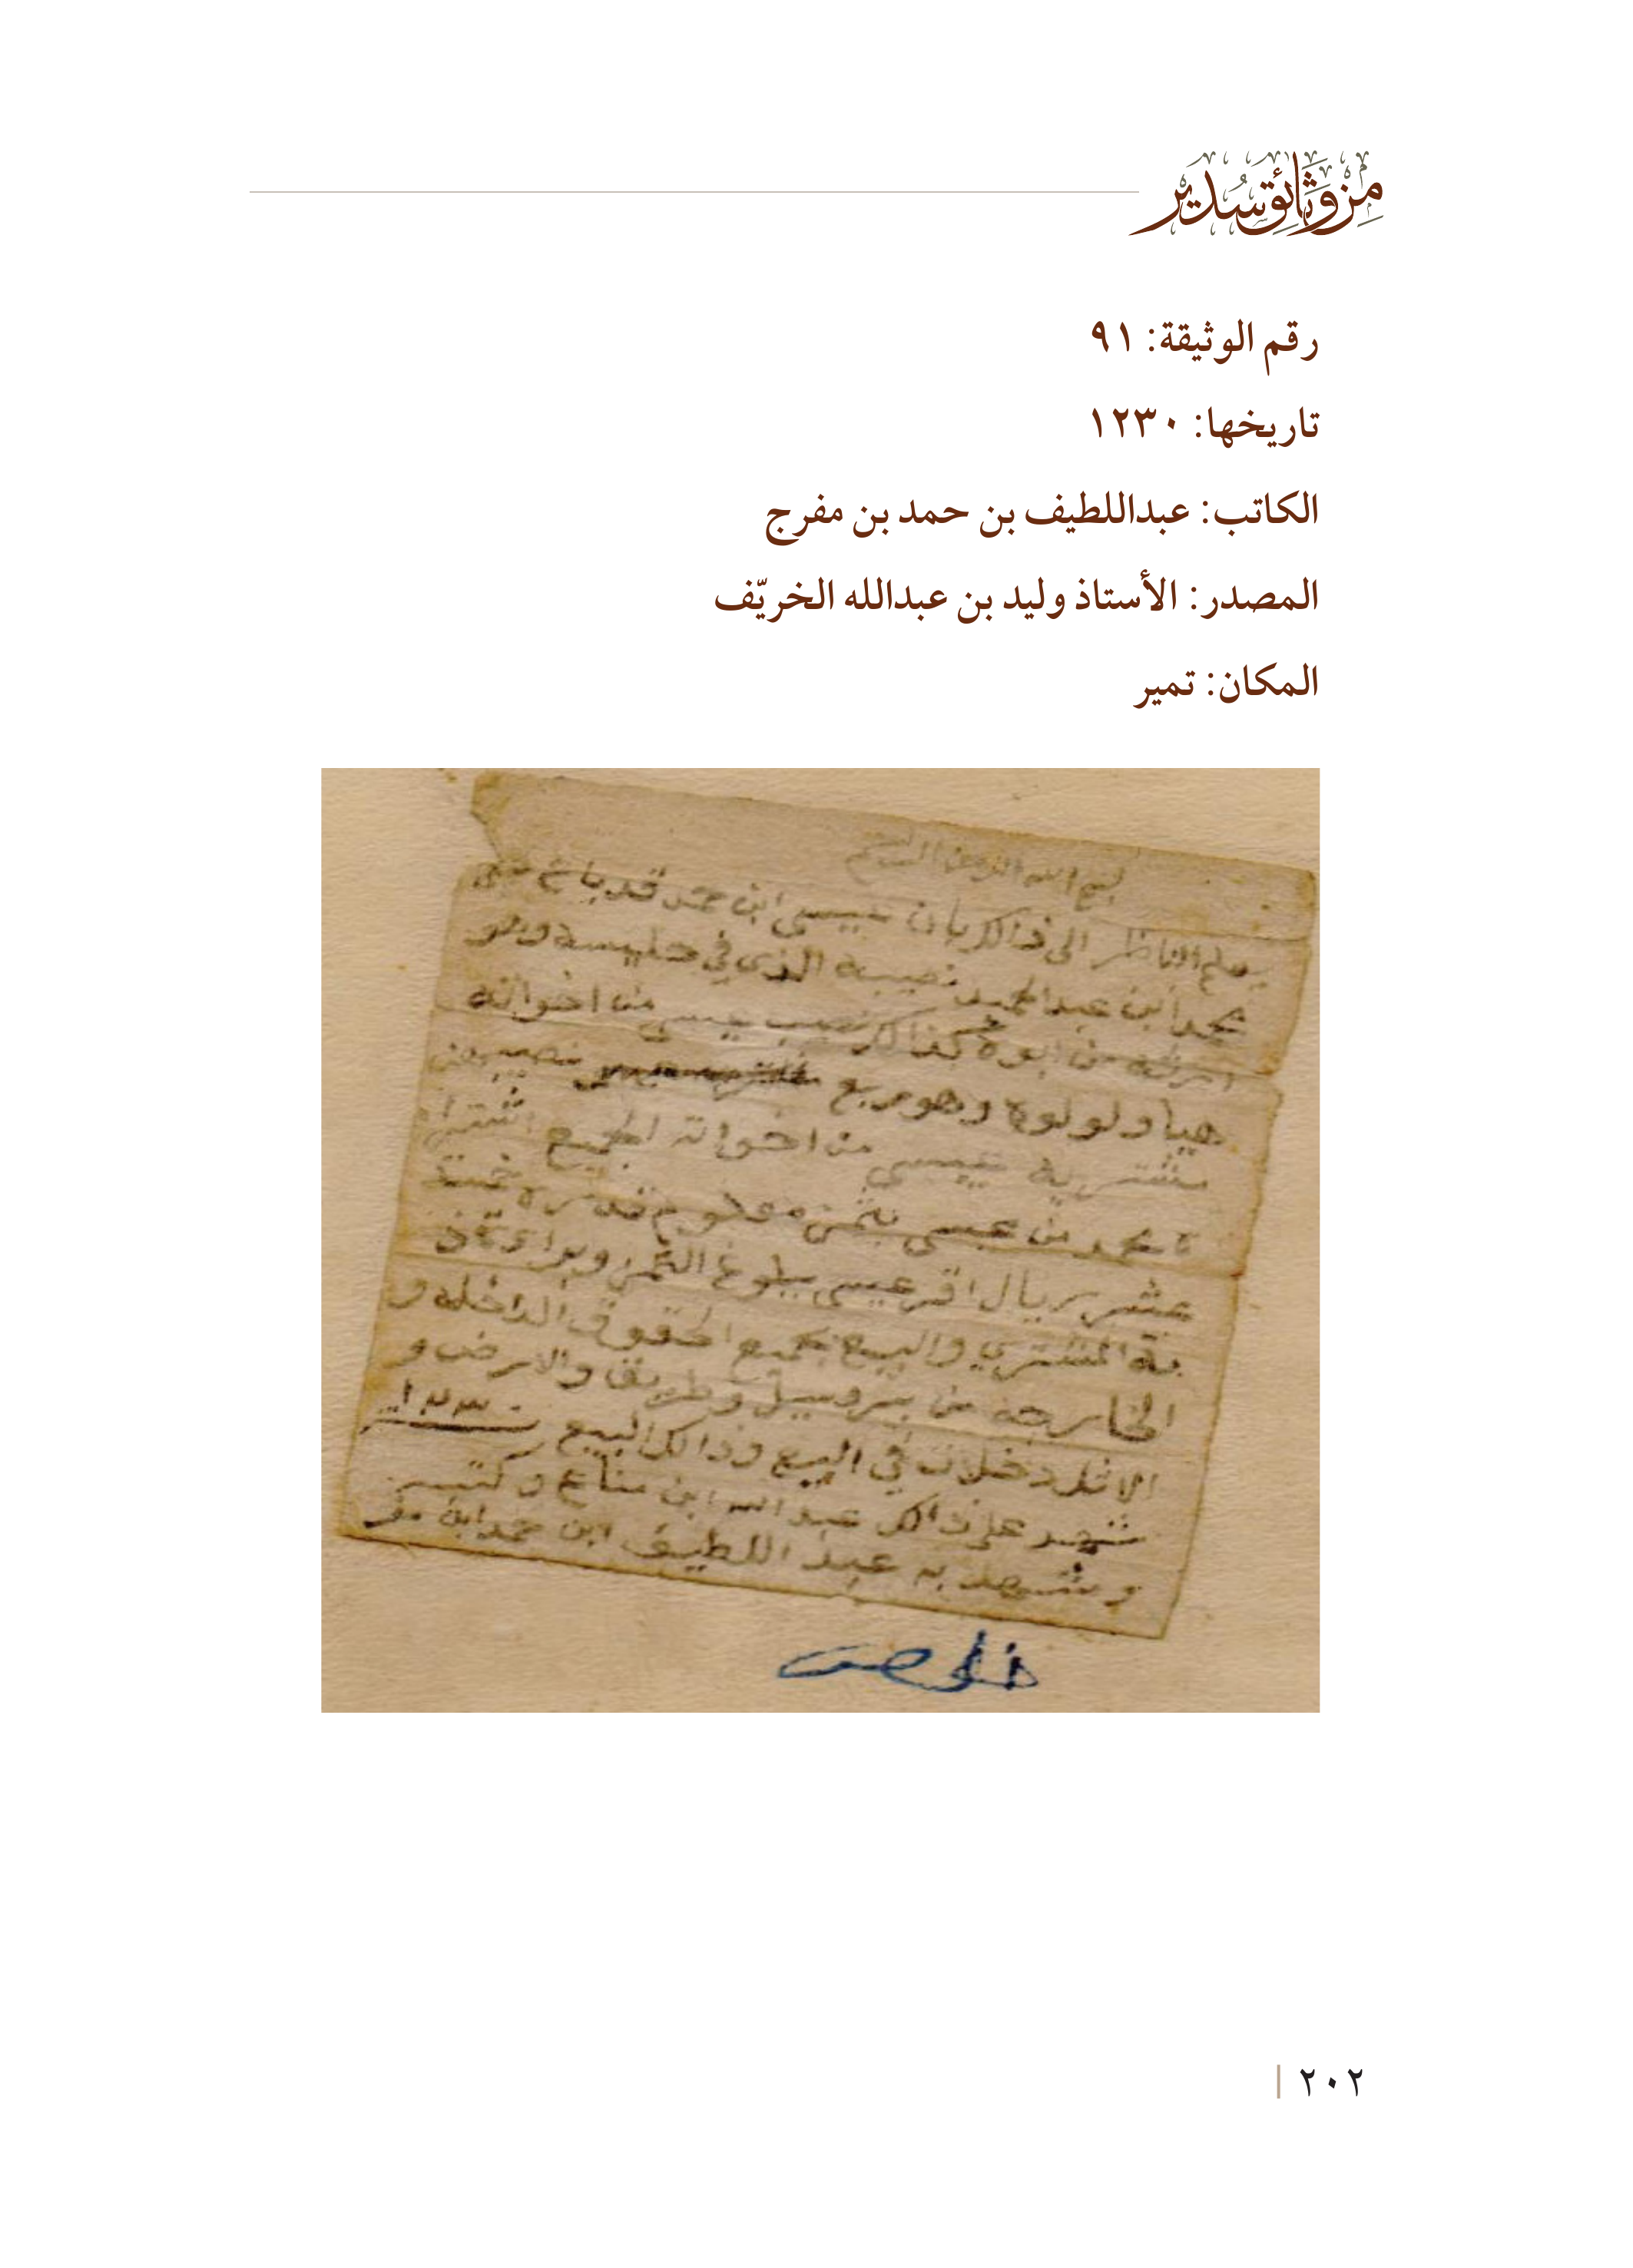 من وثائق سدير
رقم الوثيقة: ٩١
تاريخها: ١٢٣٠
الكاتب: عبداللطيف بن حمد بن مفرج
المصدر: الأستاذ وليد بن عبدالله الخريّف
المكان: تمير
بسم الله الرحمن الرحيم
يعلم الناظر الى ذالك بان عيسى ابن حمد قد باع على
محمد ابن عبد المحيد نصيبه الذي في حليسه وهو
من ابوه كذالك نصيب عيسى من اخواته
هيا ولولوه وهو ربع نصيبهن
مشتريه عيسى من اخواته الجميع اشتراه
محمد من عيسى بثمن معلوم قدره خمسة
عشر ريال اقر عيسى ببلوغ الثمن وبراءت ذ
مة المشتري والبيع بجميع الحقوق الداخله و
الخارجه من بير وسيل وطريق والارض و
الاثل دخلات في البيع وذالك البيع سنه ١٢٣٠
شهد على ذالك عبد الله ابن مناع وكتبه
وشهد به عبد اللطيف ابن حمد ابن مفرج
٢٠٢